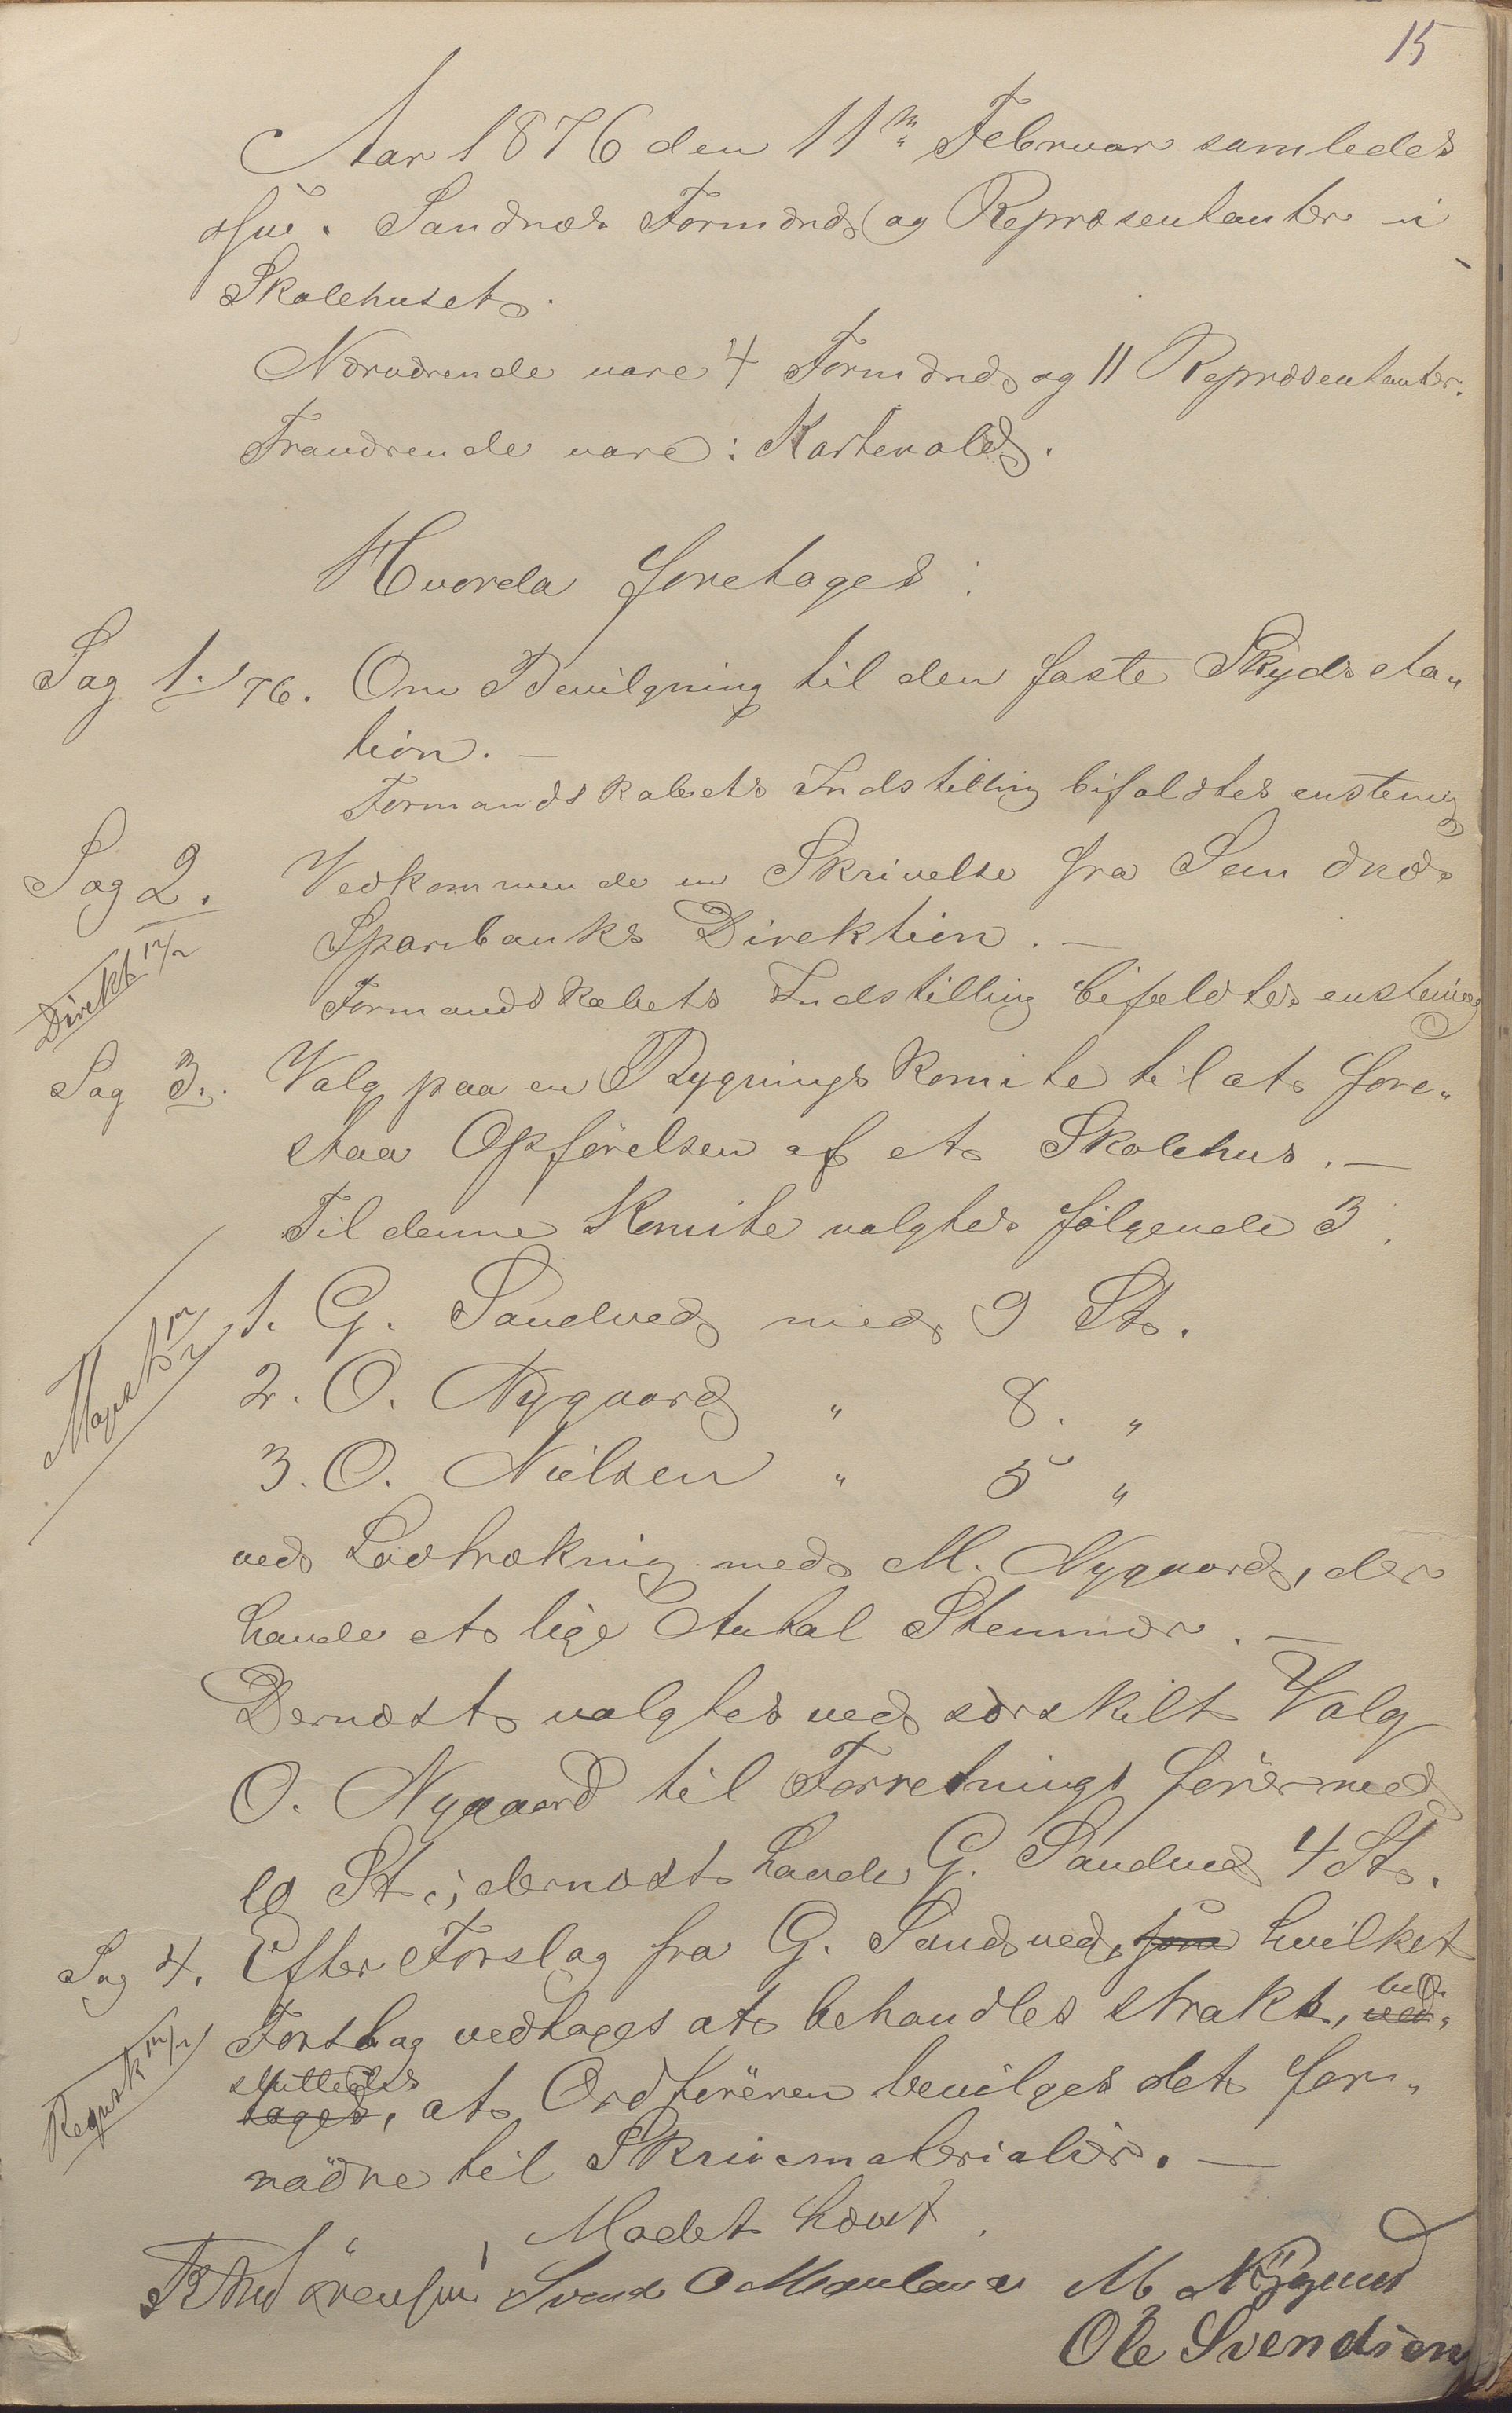 15
Aar 1876 den 11te Februar samledes
Sandnæs Formænd og Repræsentanter i
Skolehuset.
Nærværende vare 4 Formænd og 11 Repræsentanter.
Fraværende vare: Kartevold.
Hvorda foretages:
Sag 1./76. Om Bevilgning til den faste Skydssta„
tion. —
Formandskabets Indstilling bifaldtes enstemig
Sag 2. Vedkommende en Skrivelse fra Sandnæs
Sparebanks Direktion. —
Direkt 12/2
Formandskabets Indstilling bifaldtes enstemig
Sag 3. Valg paa en Bygningskomite til at fore„
staa Opførelsen af et Skolehus. —
Til denne Komite valgtes følgende 3.
1. G. Sandved med 9 St.
Magist 12/2
2. O. Nygaard „ 8. „
3. O. Nielsen „ 5 „
ved Lodtrækning med M. Nygaard, der
havde et lige Antal Stemmer. —
Dernæst valgtes ved særskilt Valg
O. Nygaard til Forretningsfører med
10 St.; dernæst havde G. Sandved 4 St.
Sag 4. Efter Forslag fra G. Sandved, som hvilket
Forslag vedtages at behandles strakt, ved„ be„
Reqnsk 12/2
sluttedes
tages, at Ordføreren bevilges det for„
nødne til Skrivematerialier. —
Mødet hævt.
Svend O Mauland M Nygaard
Ole Svendsen